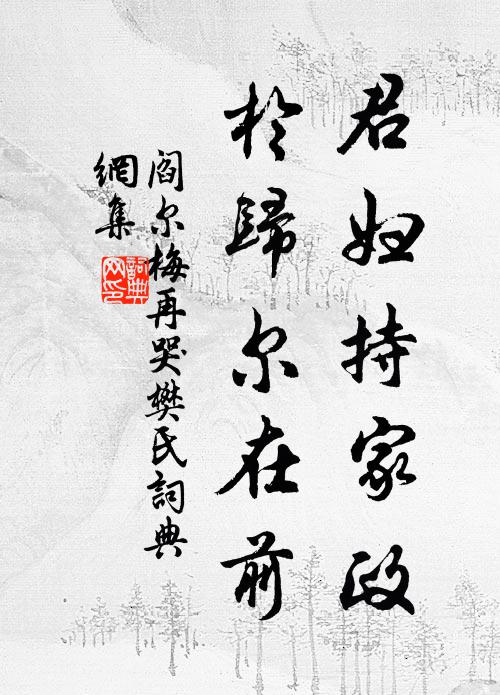 君妇持家政
於歸尔在前
阎尔梅再哭樊氏詞典
網集
詞典网印